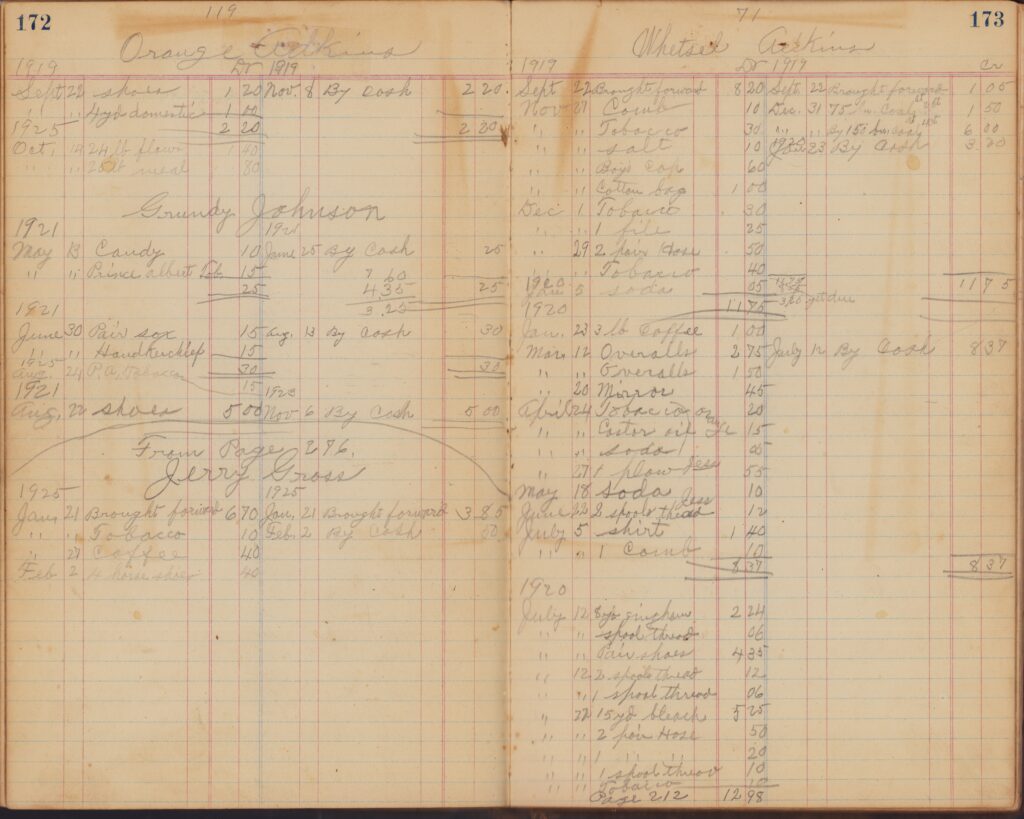 172
119
Orange Adkins
1919 Dr 1919
Sept 22 shoes 1 20 Nov. 8 By Cash 2 20
" " 4 yd domestic 1 00
2 20 2 20
1925
Oct, 14 24 lb flour 1 40
" " 20 lb meal 80
Grundy Johnson
1921 1921
May 13 Candy 10 June 25 By Cash 25
" " Prince albert Tob. 15 7 60
25 4 35 25
3 25
1921
June 30 Pair sox 15 Aug. 13 By Cash 30
" " Handkerchief 15
30 30
1925
Aug. 24 P.A. Tobacco 15
1921 1923
Aug, 22 shoes 5 00 Nov 6 By Cash 5 00
From Page 276.
Jerry Gross
1925 1925
Jan, 21 Brought forward 6 70 Jan, 21 Brought forward 3 85
" " Tobacco 10 Feb. 2 By Cash
" 27 Coffee 40
Feb 2 4 horse shoes 40
173
71
Whetsel Adkins
1919 Dr 1919 Cr
Sept 22 Brought forward 8 20 Sept. 22 Brought forward 1 05
Nov 27 Comb 10 Dec. 31 75 bu. Coal 1 50
" " Tobacco 30 " " By 150 bu coal 6 00
" " salt 10 23 By Cash 3 20
" " Boys Cap 60
" " Cotton bag 1 00
Dec 1 Tobacco 30
" " 1 file 25
" 29 2 pair Hose 50
" " Tobacco 40
1920
5 soda 05 11 75
11 75 yet due
1920
Jan. 23 3 lb Coffee 1 00
Mar, 12 Overalls 2 75 July 12 By Cash 8 37
" " Overalls 1 50
" 20 Mirror 45
April 24 Tobacco 20
" " Castor oil 15
" " soda 05
" 27 1 plow 55
May 18 Soda Jess 10
June 22 2 spools thread 12
July 5 shirt 1 40
" " 1 Comb 10
8 37 8 37
1920
July 12 8 yd gingham 2 24
" " spool thread 06
" " Pair shoes 4 35
" 12 2 spools thread 12
" " 1 spool thread 06
" 22 15 yd bleach 5 25
" " 2 pair Hose 50
" " 1 " " 20
" " 1 spool thread 10
" " Tobacco 10
Page 212 12 98